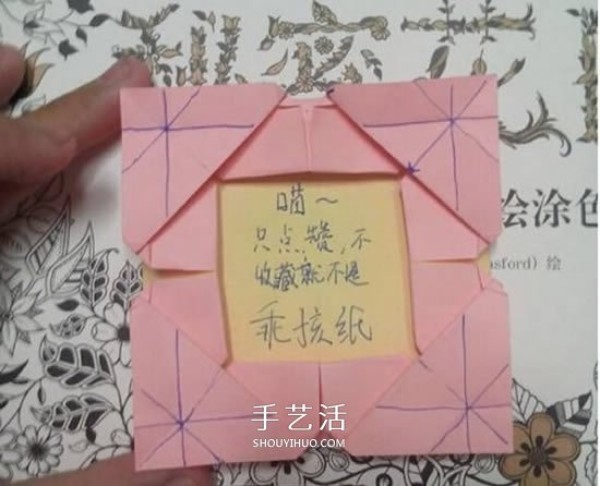 喵~
只点赞,不
收藏就不是
乖孩纸
绘涂色
sford) 绘
手艺活
SHOUYIHUO.COM